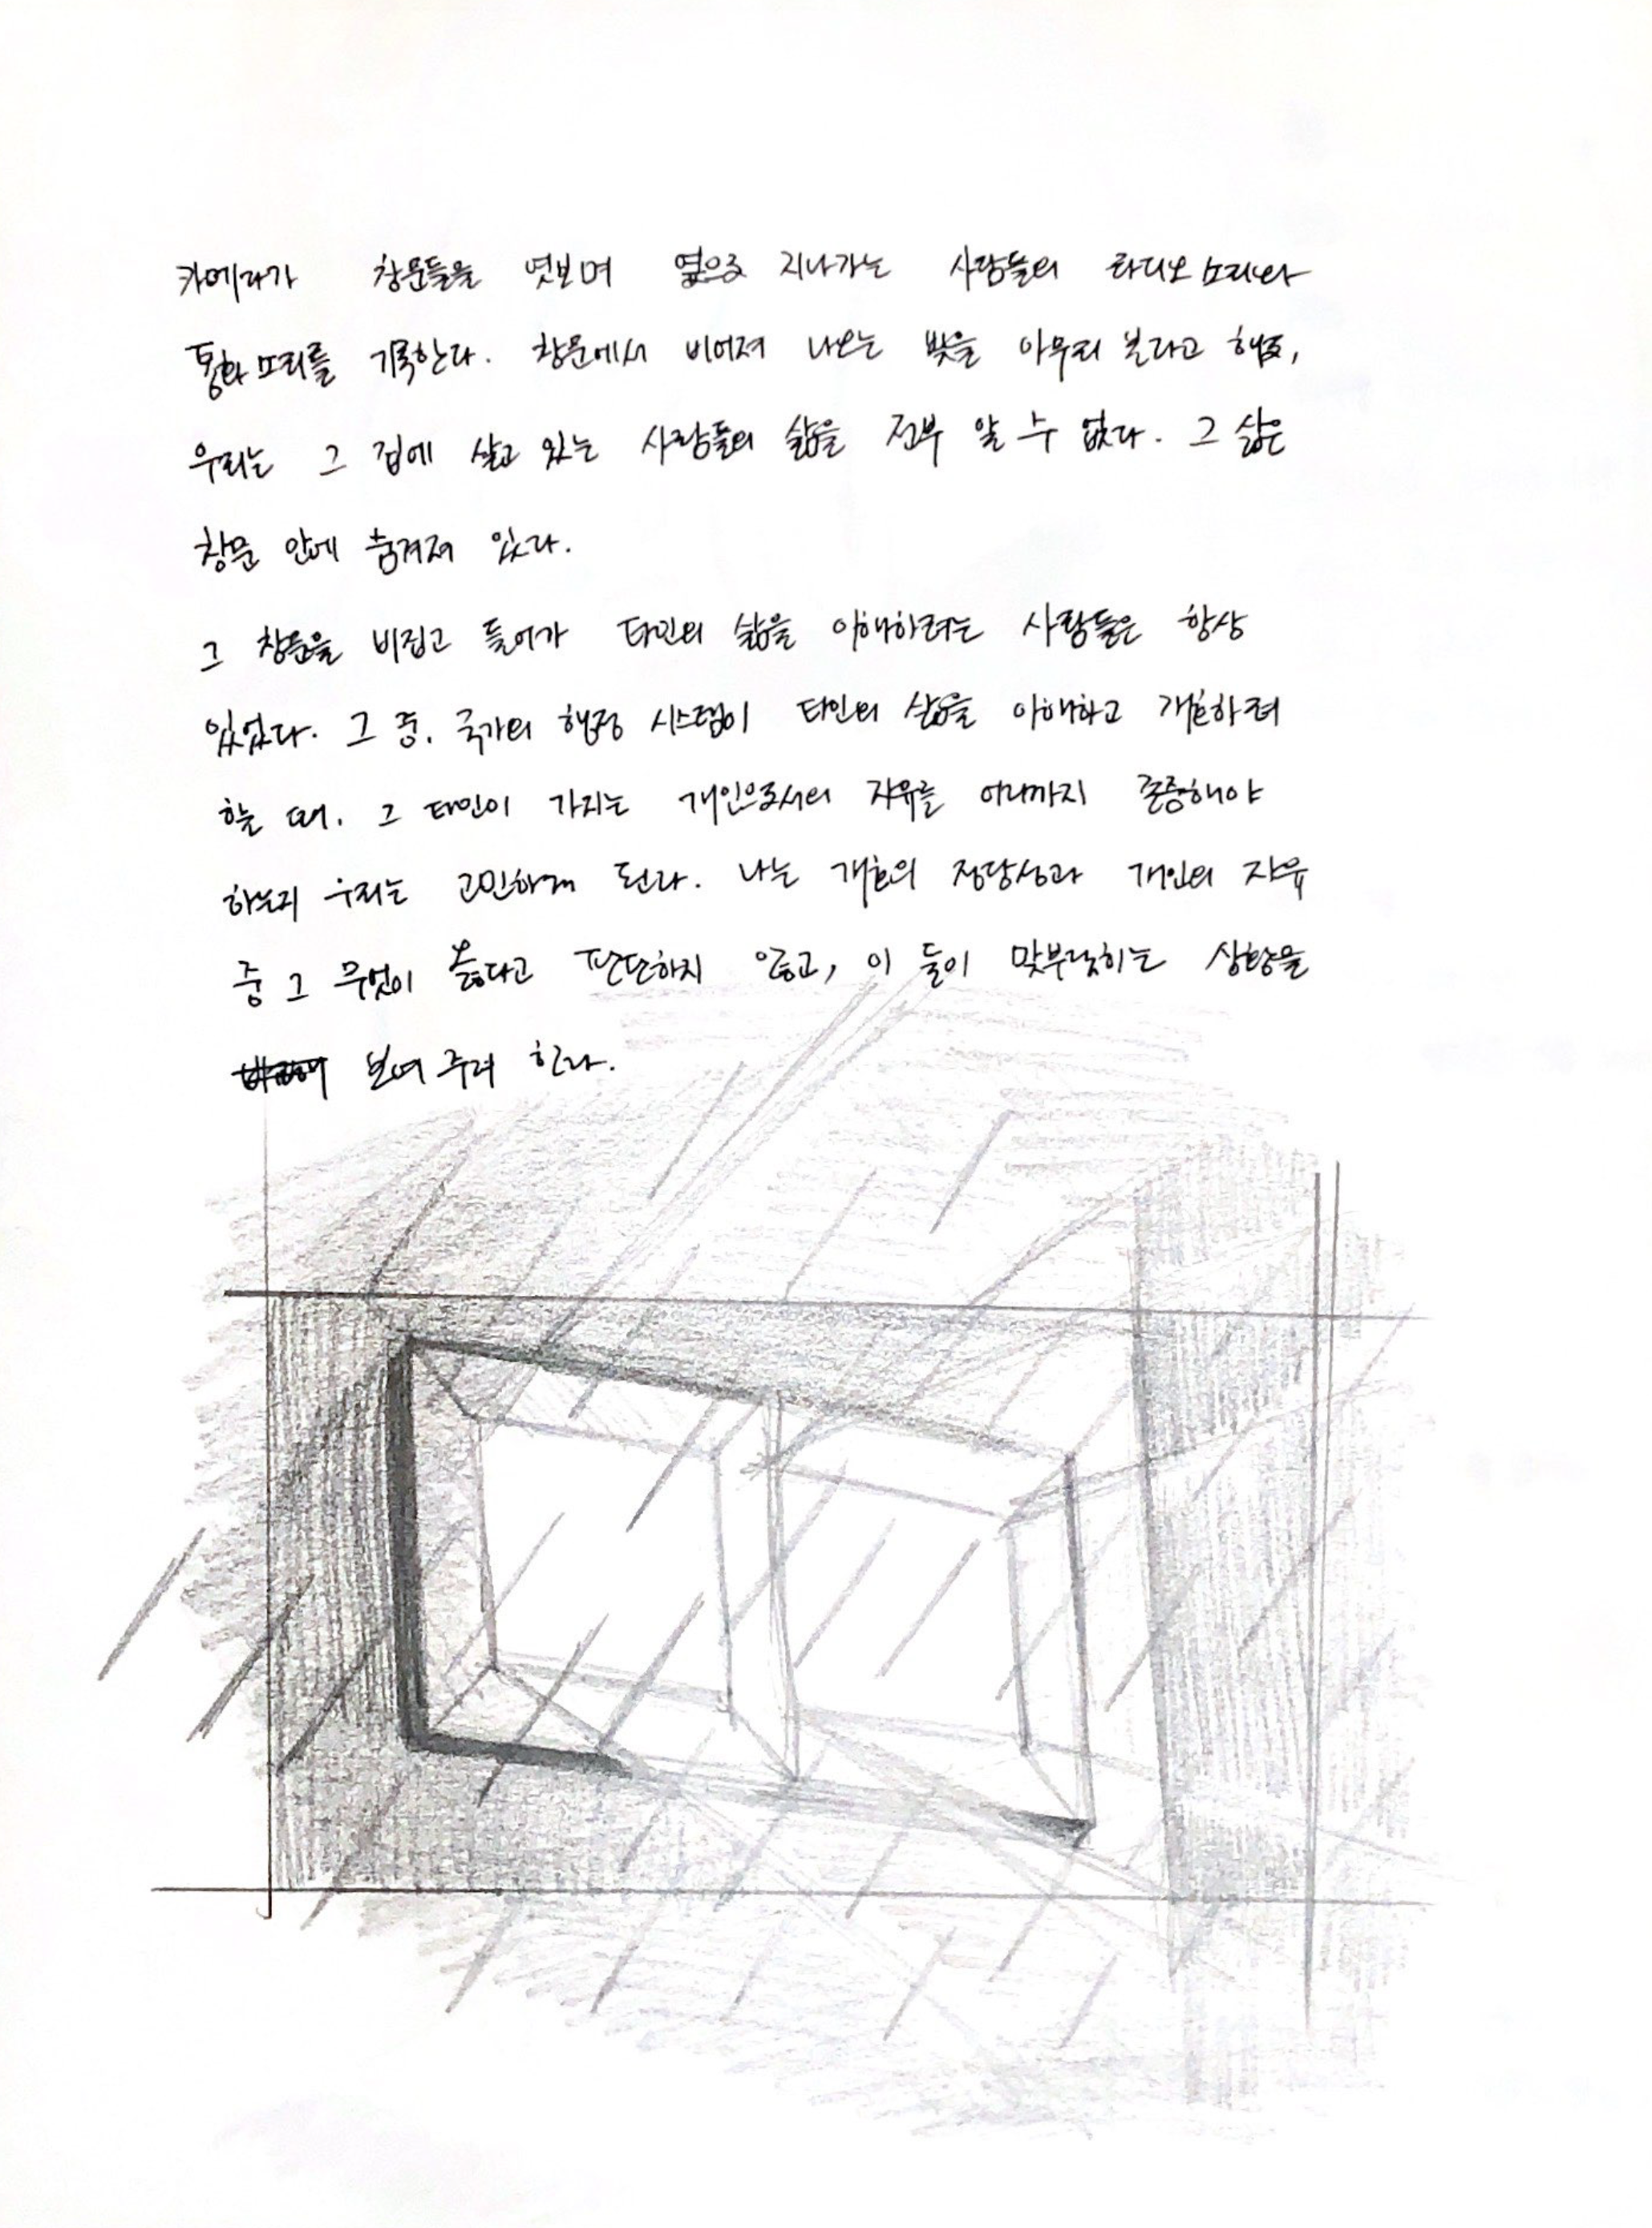 카메라가 창문들을 엿보며 옆으로 지나가는 사람들의 라디오 소리와
통화 소리를 기록한다. 창문에서 비어져 나오는 빛을 아무리 본다고 해도,
우리는 그 집에 살고 있는 사람들의 삶을 전부 알 수 없다. 그 삶은
창문 안에 숨겨져 있다.
그 창문을 비집고 들어가 타인의 삶을 이해하려는 사람들은 항상
있었다. 그 중, 국가의 행정 시스템이 타인의 삶을 이해하고 개입하려
할 때, 그 타인이 가지는 개인으로서의 자유를 어디까지 존중해야
하는지 우리는 고민하게 된다. 나는 개입의 정당성과 개인의 자유
중 그 무엇이 옳다고 판단하지 않고, 이 둘이 맞부딪히는 상황을
보여주려 한다.